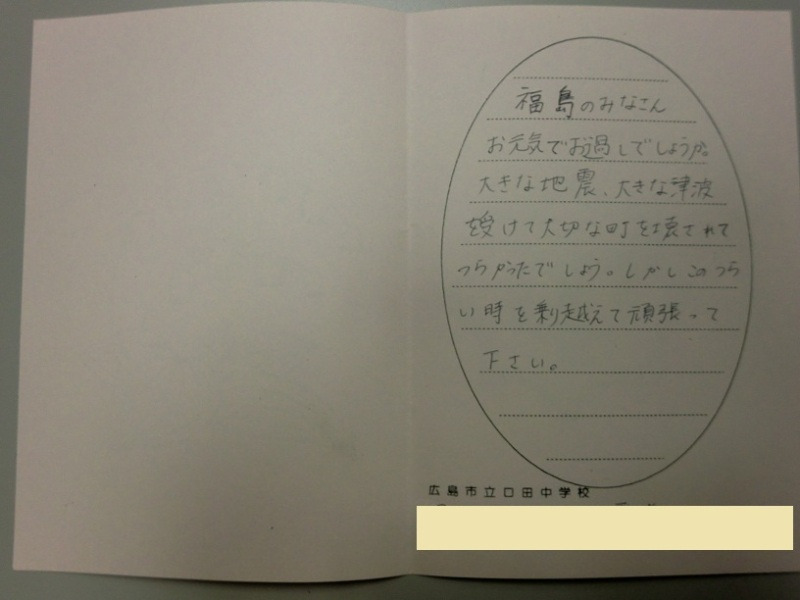 福島のみなさん
お元気でお過しでしょうか。
大きな地震、大きな津波
を受けて大切な町を壊されて
つらかったでしょう。しかしこのつら
い時を乗り越えて頑張って
下さい。
広島市立口田中学校